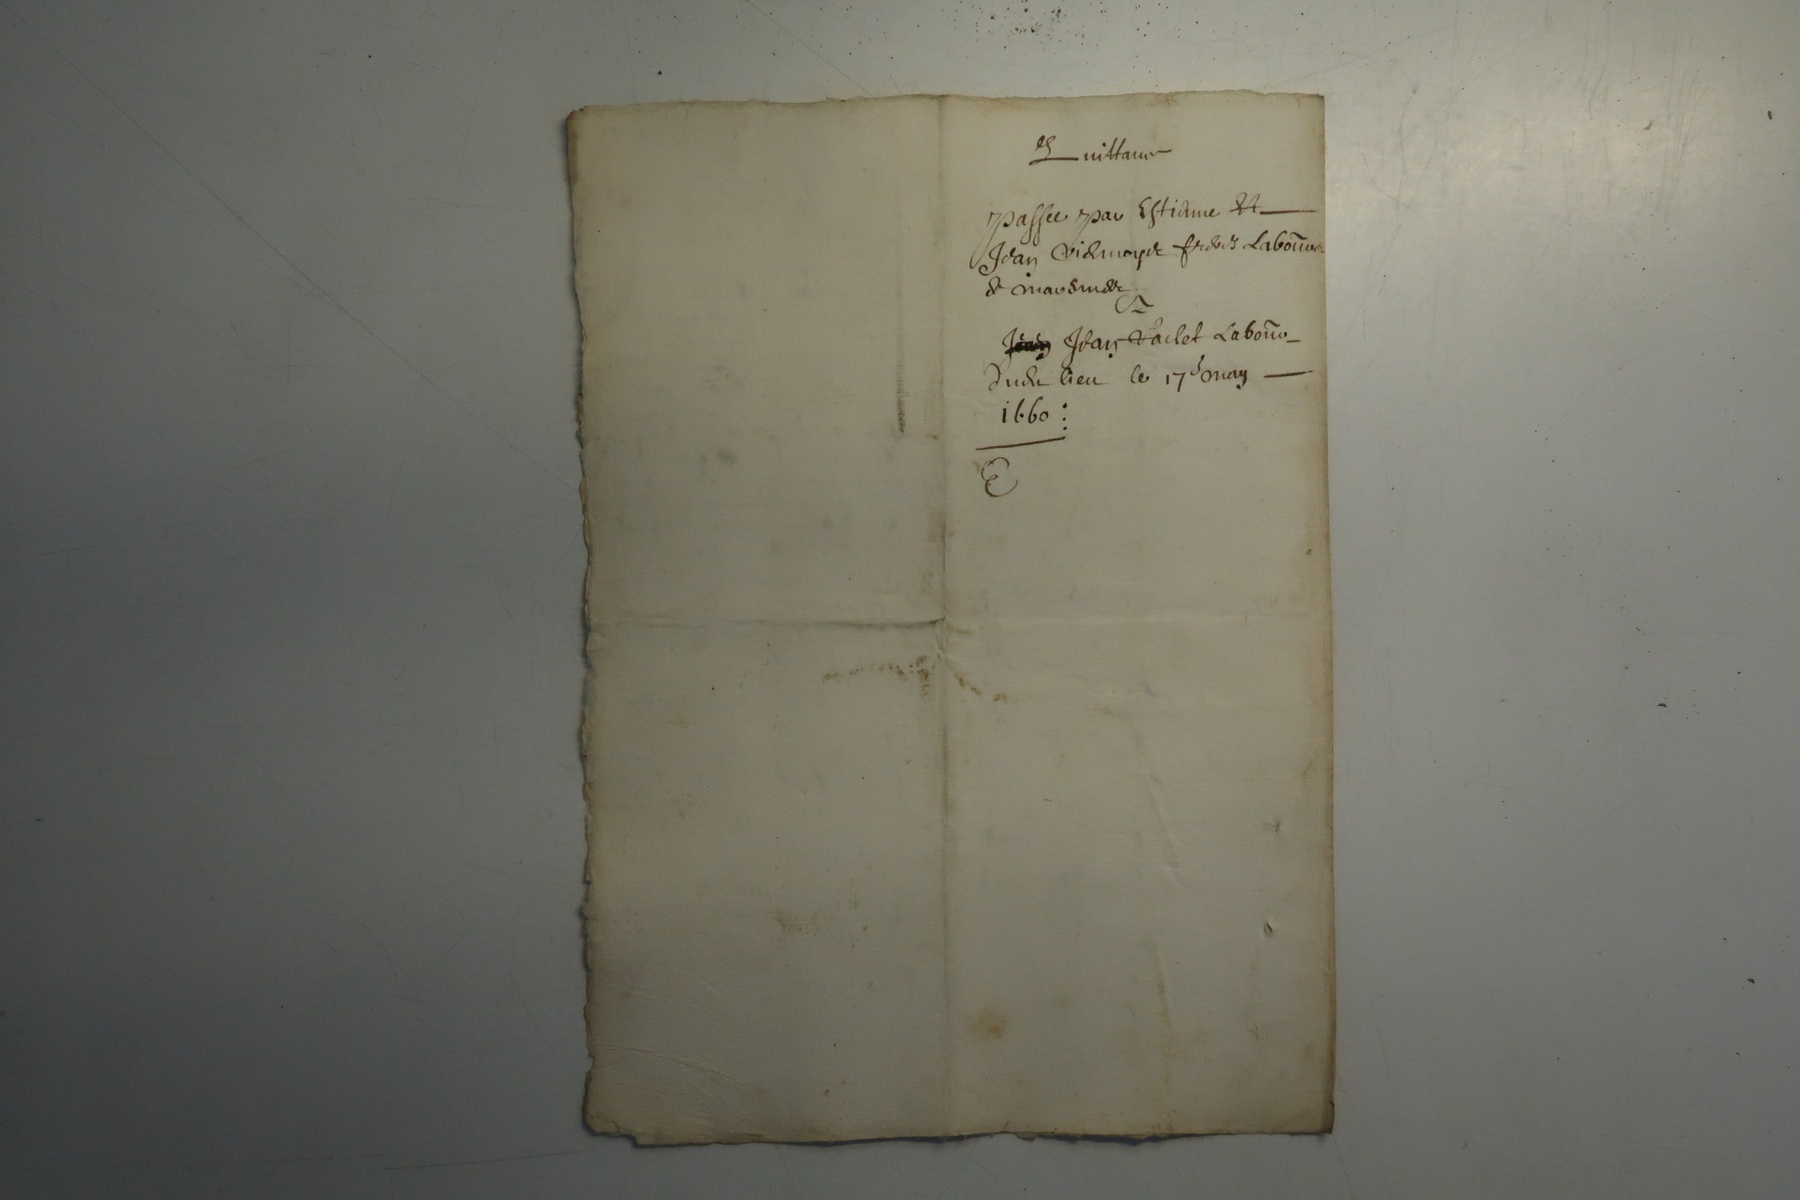 Quittance
passee par Estienne et
Jean freres Labour
de
A
Jean Jean Labour
dudit lieu le 17e may
1660 :